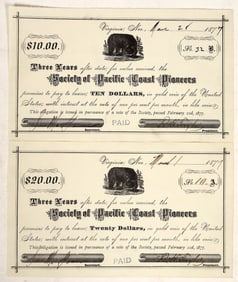 Virginia, Nev.
187
$10.00.
No. 32
Three Years after date, for value received, the
Society of Pacific Coast Pioneers
promise to pay to bearer, TEN DOLLARS, in gold coin of the United
States, with interest at the rate of one per cent per month, in like coin.
This obligation is issued in pursuance of a vote of the Society, passed February 22d, 1877.
PAID
Virginia, Nev.
187
$20.00.
No. 10
Three Years after date, for value received, the
Society of Pacific Coast Pioneers
promise to pay to bearer, Twenty Dollars, in gold coin of the United
States, with interest at the rate of one per cent per month, in like coin.
This obligation is issued in pursuance of a vote of the Society, passed February 22d, 1877.
PAID